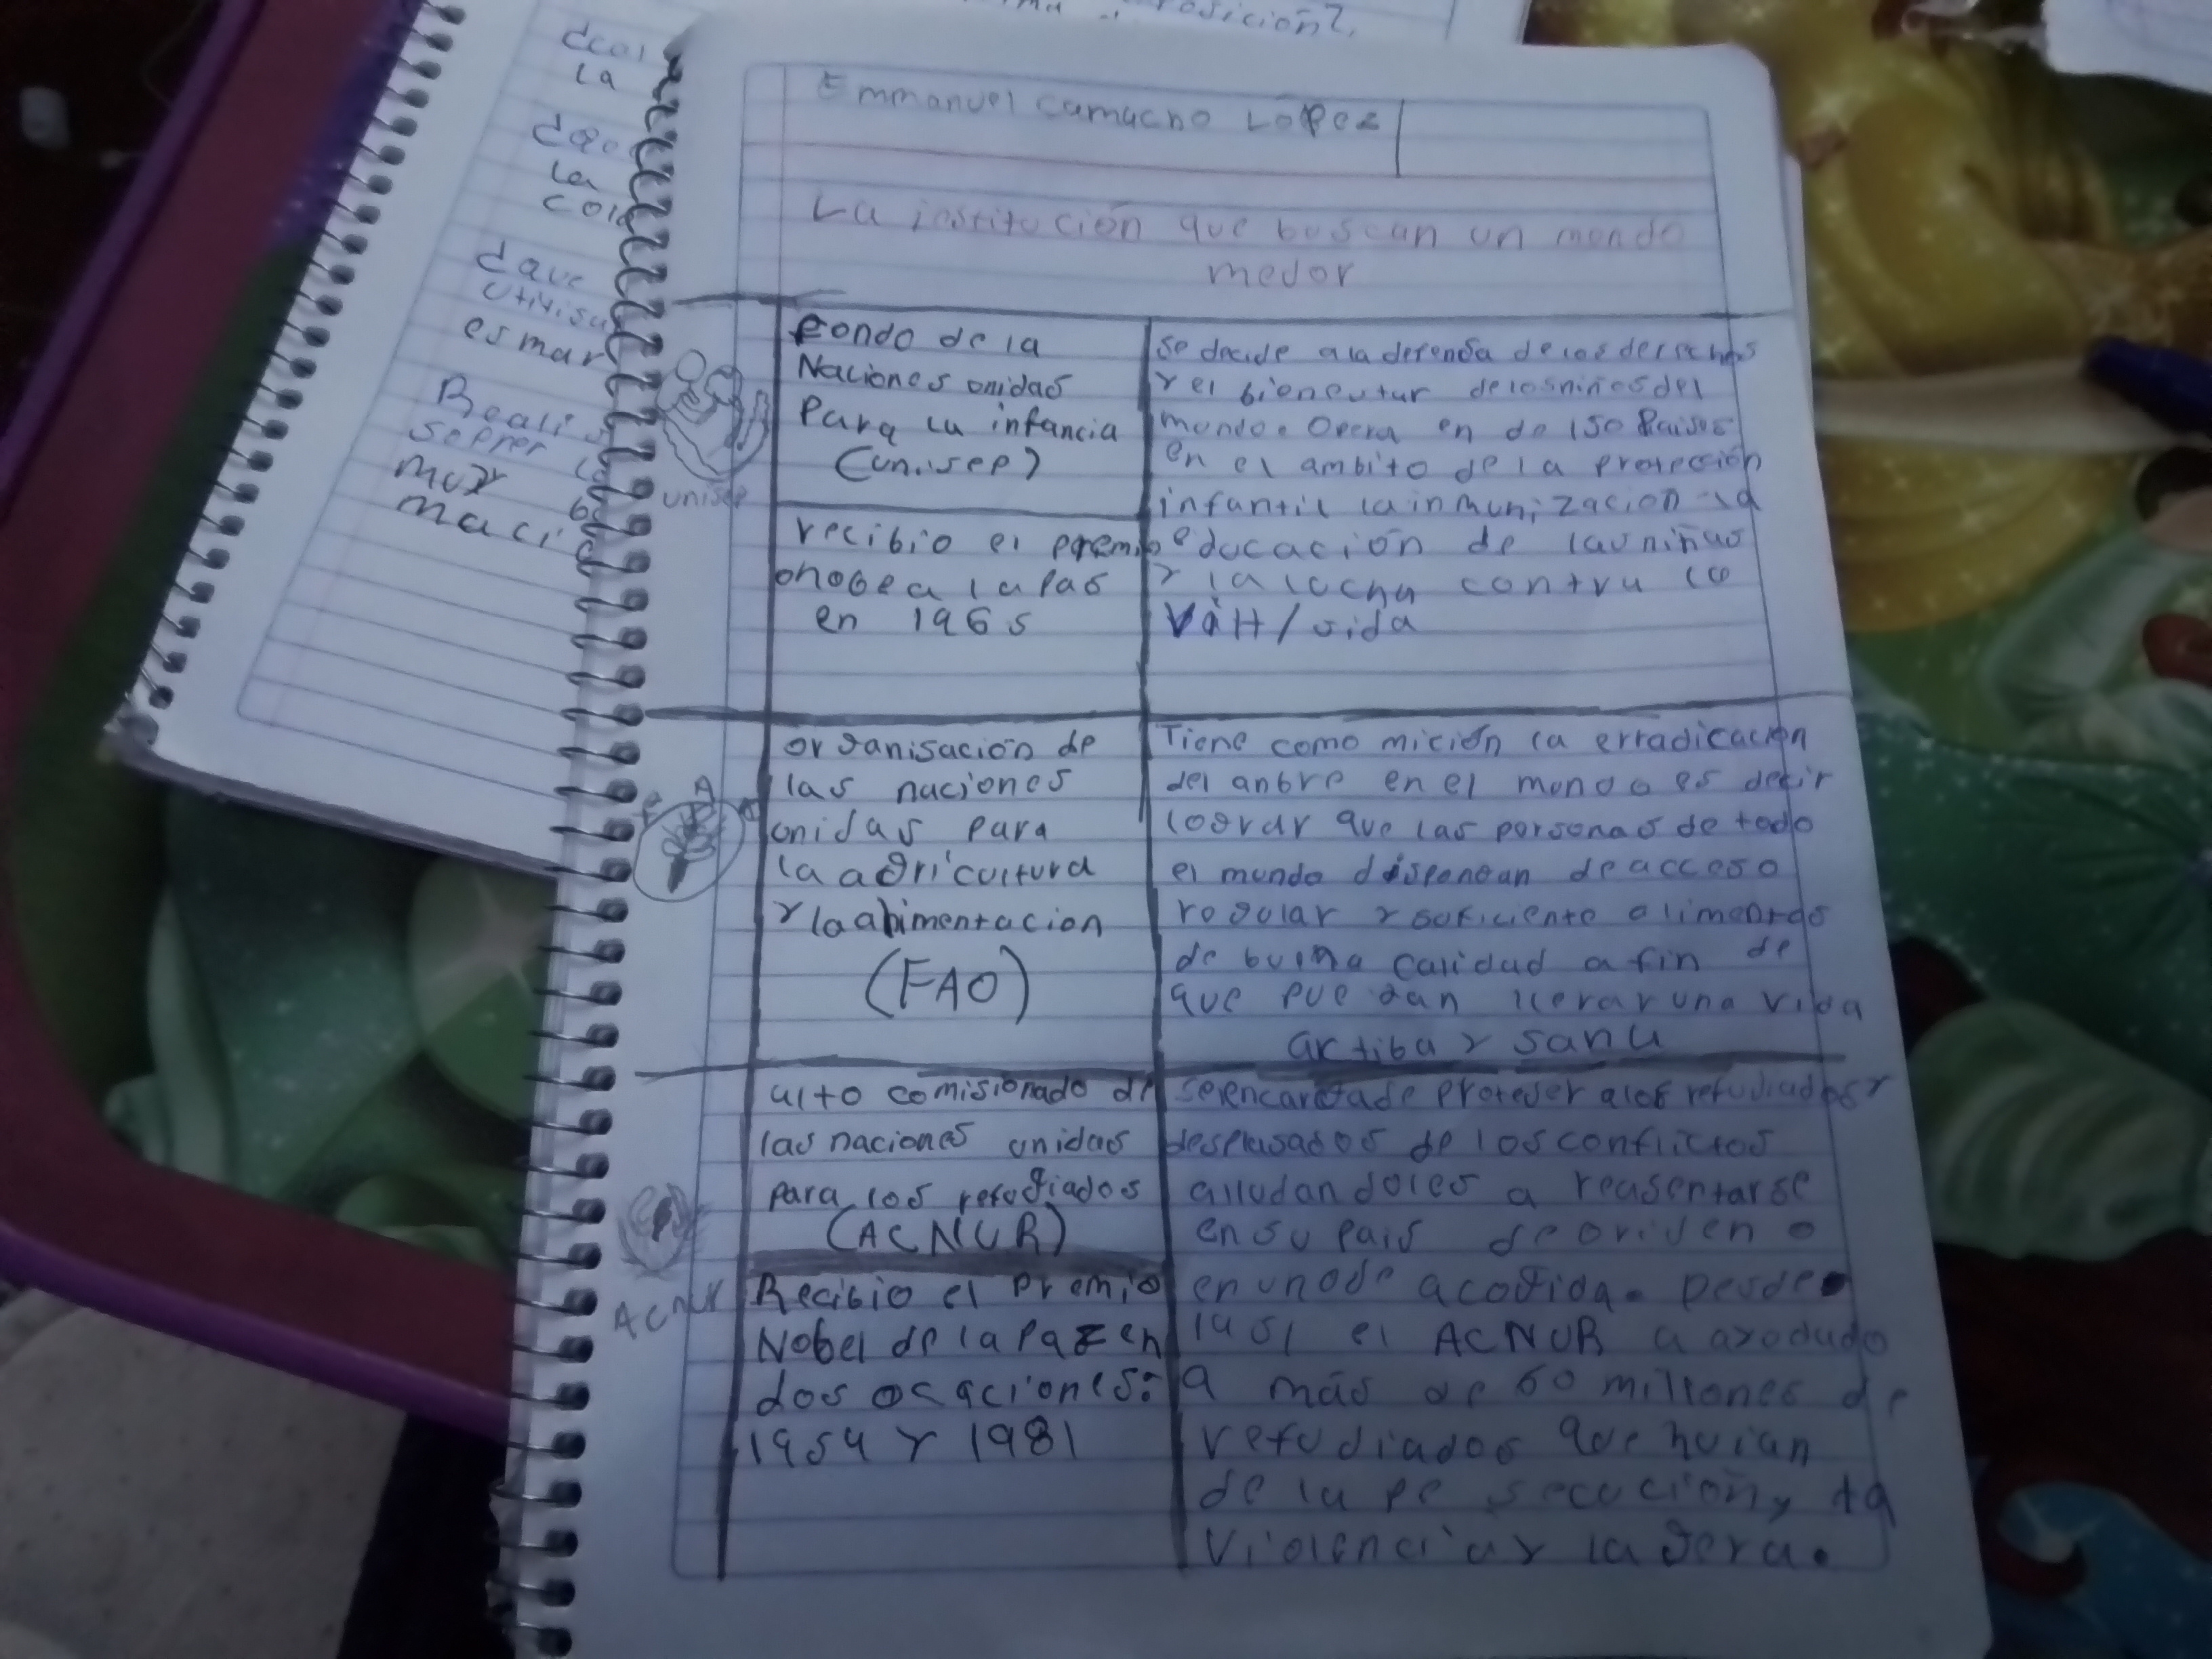 Emmanuel Camacho López
La institución que buscan un mondo
medor
Fondo de la
Naciones unidas
Para la infancia
(unisep)
unisep
recibio el premio
onobea la Pas
en 1965
se decide a la defensa de los derechos
y el bienestar de los niños del
mundo. Opera en de 150 Paises
en el ambito de la protección
infantil la inmunización la
educación de las niñas
y la lucha contra
VIH/sida
organisación de
las naciones
unidas para
la agricultura
y la alimentacion
(FAO)
Tiene como mición la erradicación
del anbre en el mondo es decir
lograr que las personas de todo
el mundo dispongan de acceso
regular y suficiente alimentos
de buena calidad a fin de
que puedan llevar una vida
actiba y sana
alto comisionado de
las naciones unidas
para los refugiados
(ACNUR)
ACNUR
Recibio el Premio
Nobel de la Paz en
dos ocaciones:
1954 y 1981
se encarga de proteger a los refugiados y
desplasados de los conflictos
alludandoles a reasentarse
en su pais de origen o
en uno de acogida. Desde
1951 el ACNUR a ayodado
a más de 60 millones de
refugiados que huian
de la pesecución, la
violencia y la gera.
la
la
dave
esmar
muy